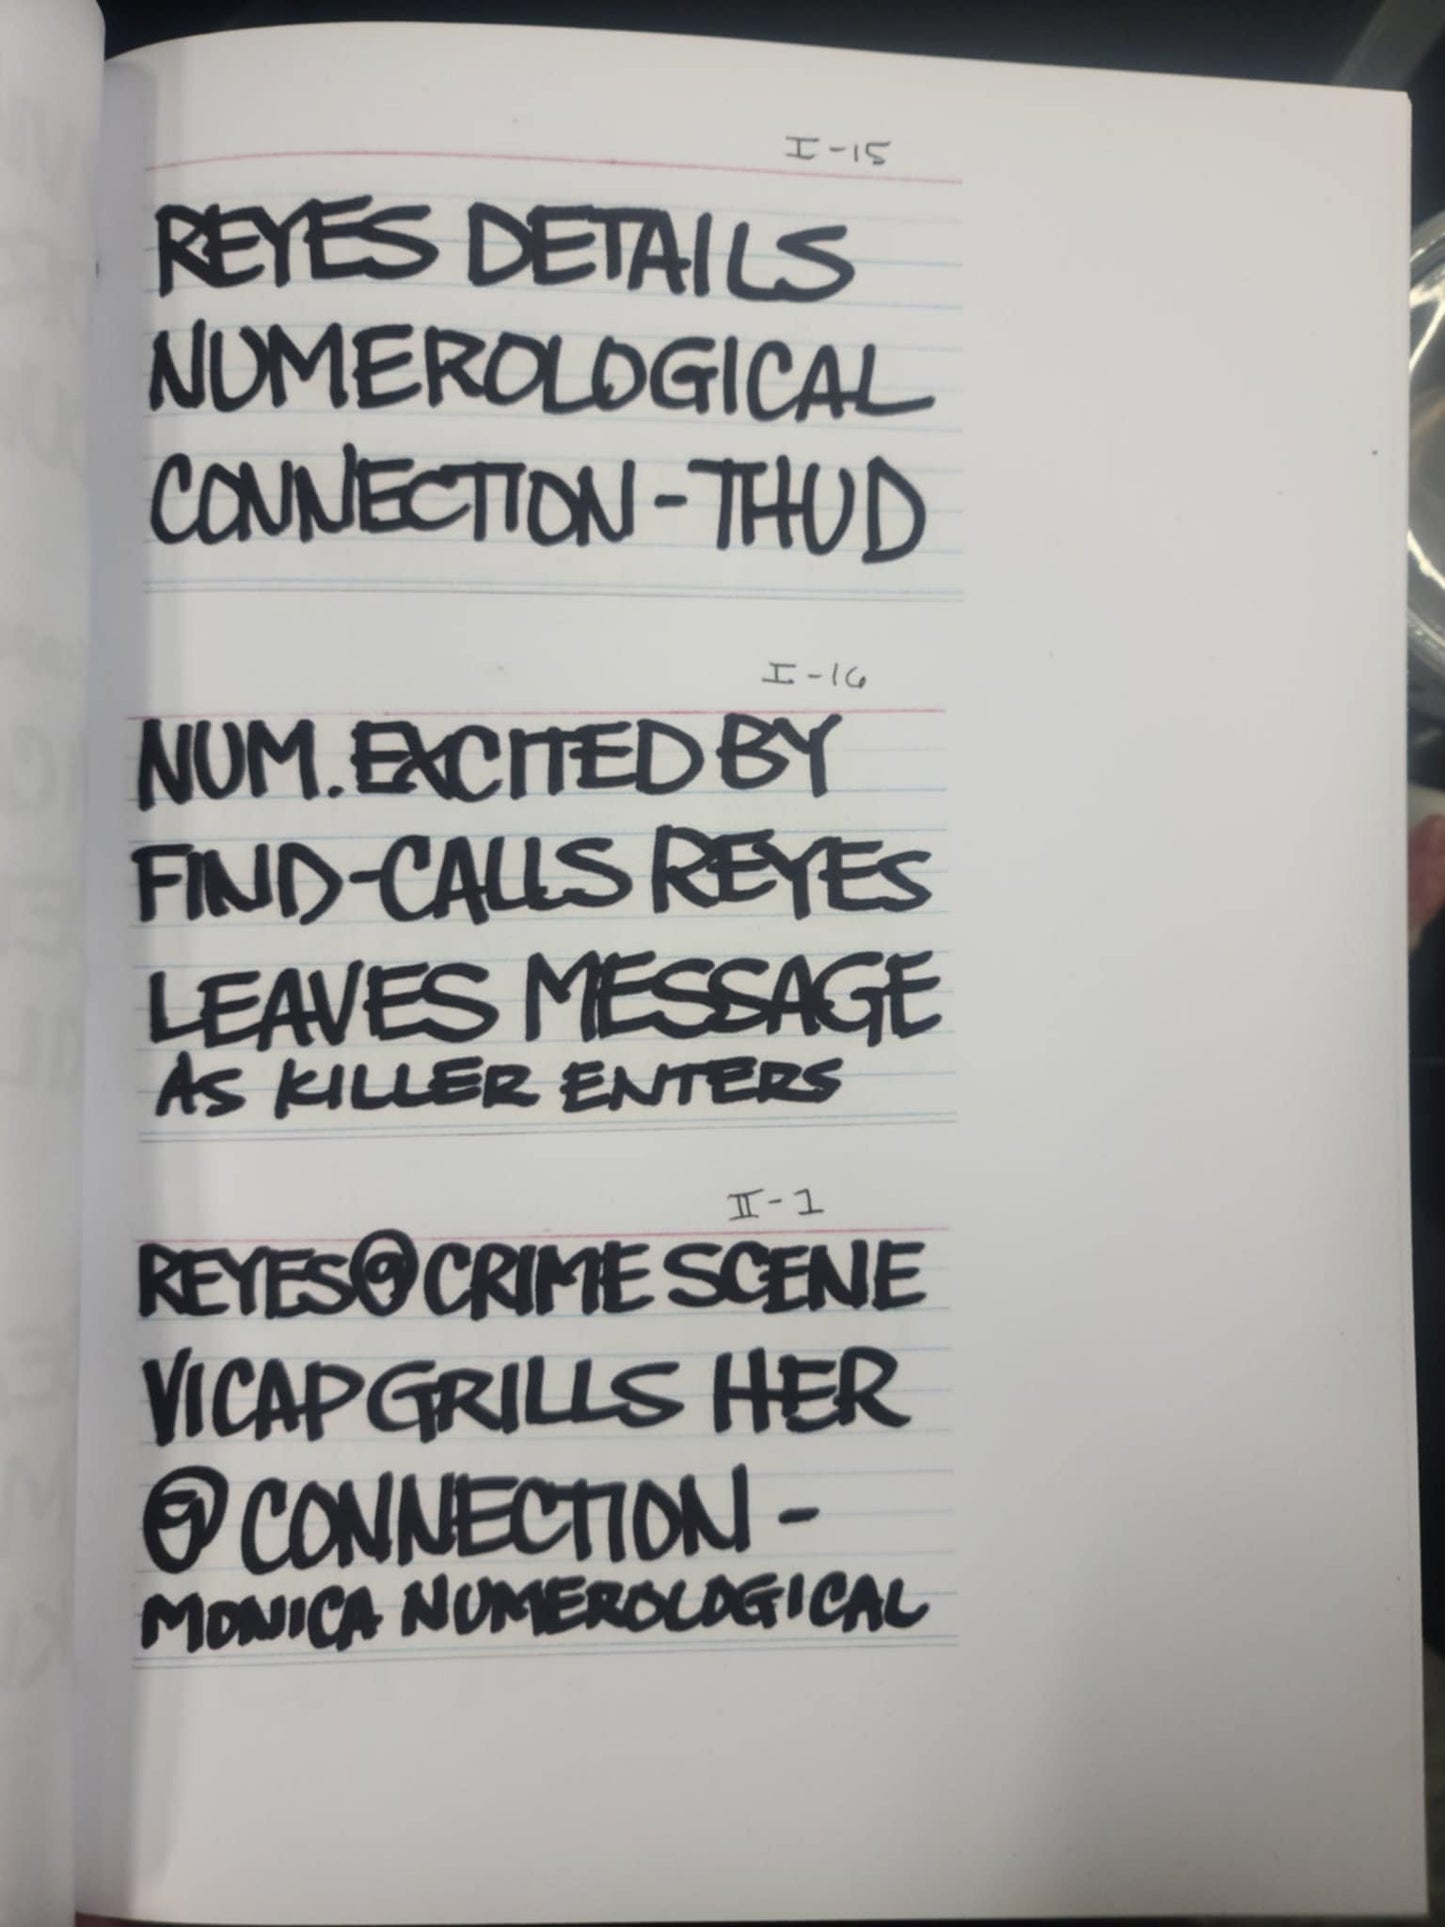 I-15
REYES DETAILS
NUMEROLOGICAL
CONNECTION - THUD
I-16
NUM. EXCITED BY
FIND - CALLS REYES
LEAVES MESSAGE
AS KILLER ENTERS
II-1
REYES @ CRIME SCENE
VICAP GRILLS HER
@ CONNECTION -
MONICA NUMEROLOGICAL